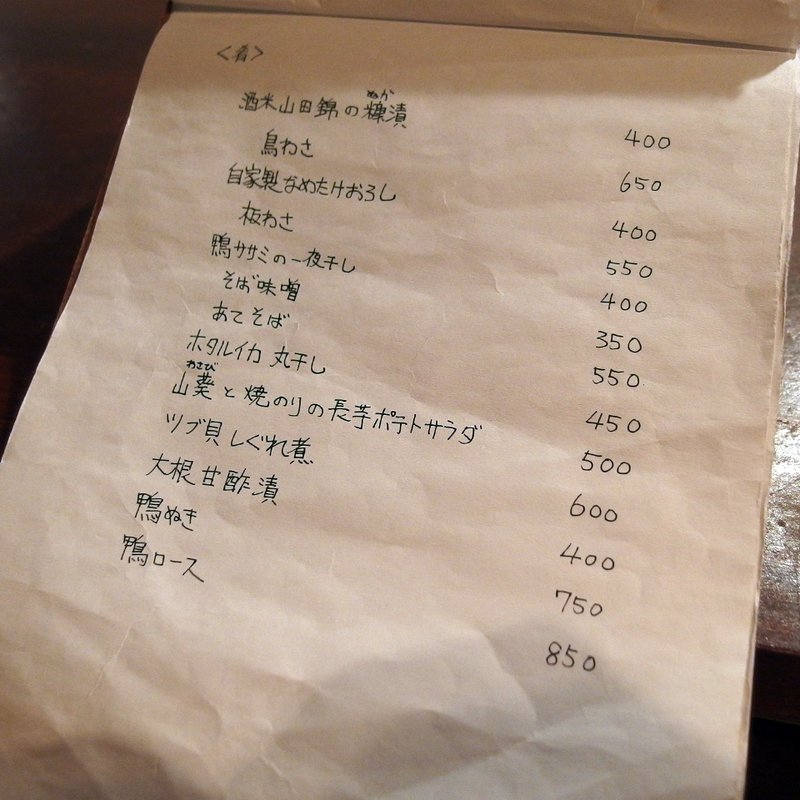 <肴>
酒米山田錦の糠漬 400
ぬか
鳥わさ 650
自家製なめたけおろし 400
板わさ 550
鴨ササミの一夜干し 400
そば味噌 350
あてそば 550
ホタルイカ 丸干し 450
わさび
山葵と焼のりの長芋ポテトサラダ 500
ツブ貝しぐれ煮 600
大根甘酢漬 400
鴨ぬき 750
鴨ロース 850